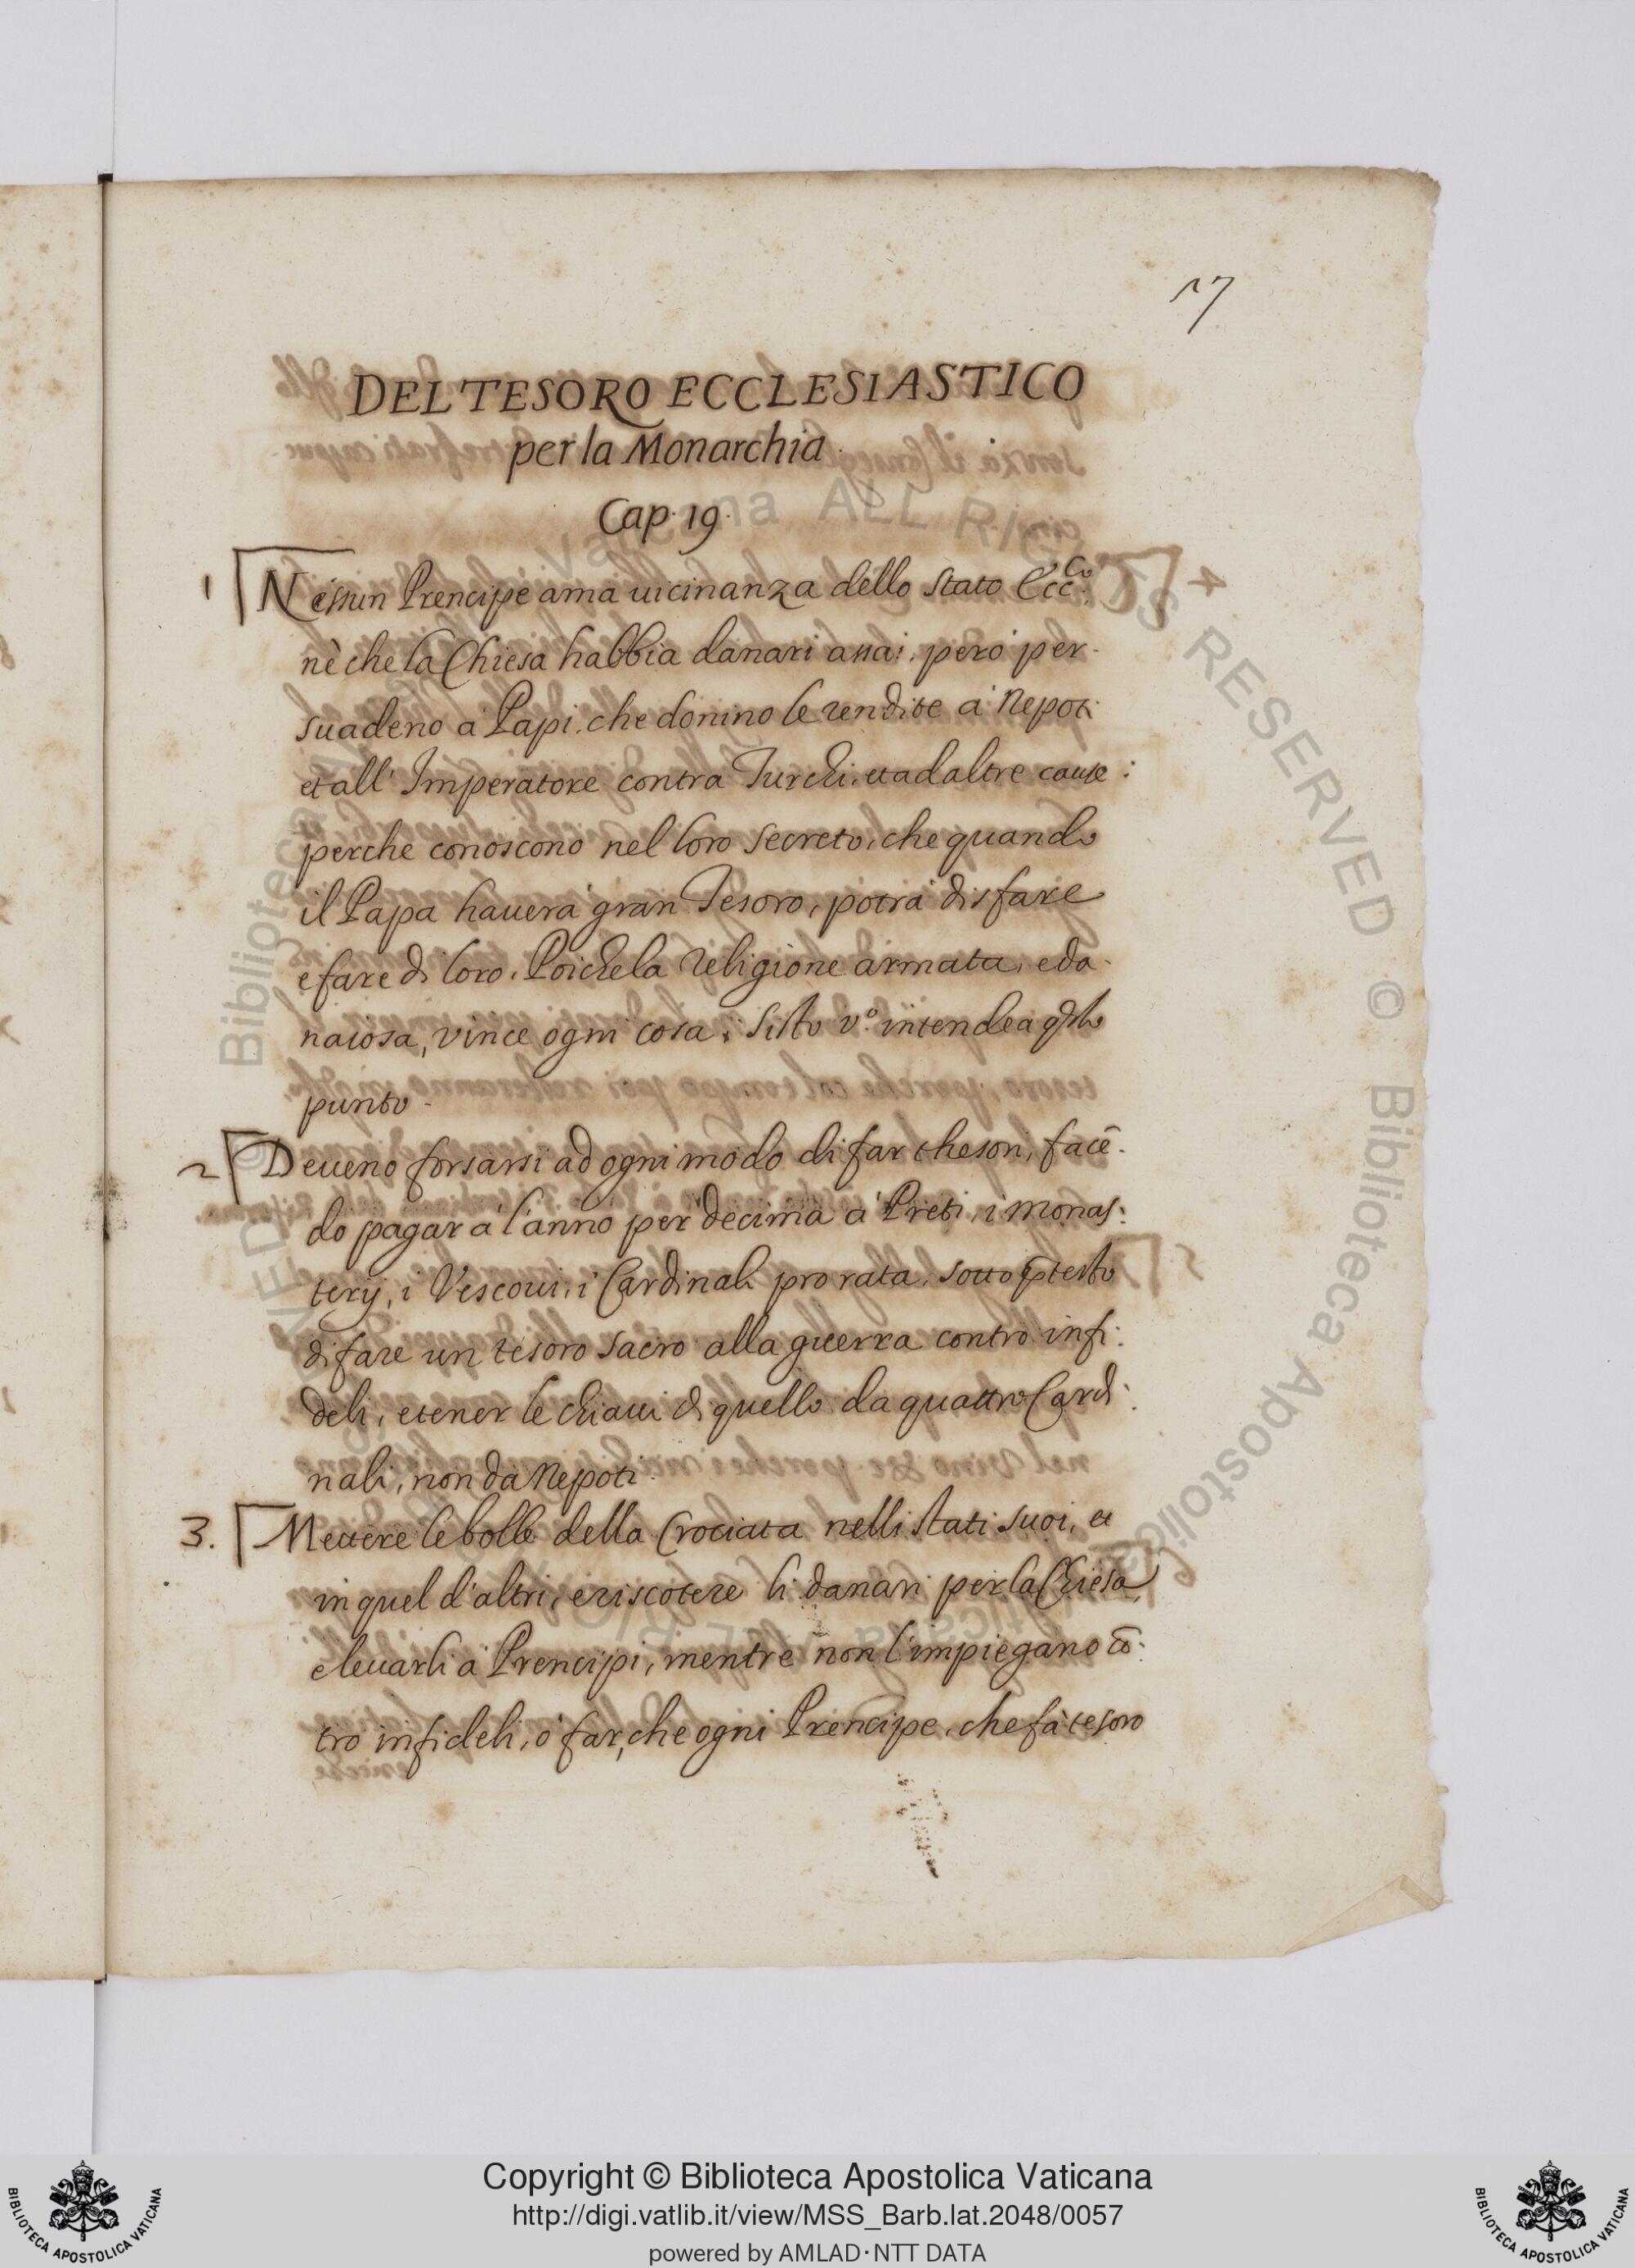 17
DEL TESORO ECCLESIASTICO
per la Monarchia
Cap. 19.
1 Nessun Prencipe ama uicinanza dello stato Ecc.co
nè che la Chiesa habbia danari assai. però per-
suadeno à Papi. che donino le rendite à Nepoti
et all' Imperatore contra Turchi. et ad altre cause:
perche conoscono nel loro secreto, che quando
il Papa hauerà gran Tesoro, potrà disfare
e fare di loro. Poiche la religione armata, e da-
naiosa, vince ogni cosa; Sisto V.o intendea q.sto
punto.
2 Deueno forsarsi ad ogni modo di far thesori, facē-
do pagar à l'anno per decima à Preti, i monas:
terij, i Vescoui, i Cardinali pro rata, sotto p̄testo
di fare un tesoro sacro alla guerra contro infi:
deli, e tener le chiaui di quello da quattro Cardi:
nali, non da Nepoti.
3. Mettere le bolle della Crociata nelli stati suoi, et
in quel d'altri, e riscotere li danari per la Chiesa,
e leuarli à Prencipi, mentre non l'impiegano cō:
tro infideli, ò far, che ogni Prencipe, che fà tesoro
Biblioteca Apostolica Vaticana ALL RIGHTS RESERVED © Biblioteca Apostolica Vaticana
Copyright © Biblioteca Apostolica Vaticana
http://digi.vatlib.it/view/MSS_Barb.lat.2048/0057
powered by AMLAD·NTT DATA
BIBLIOTECA APOSTOLICA VATICANA
BIBLIOTECA APOSTOLICA VATICANA